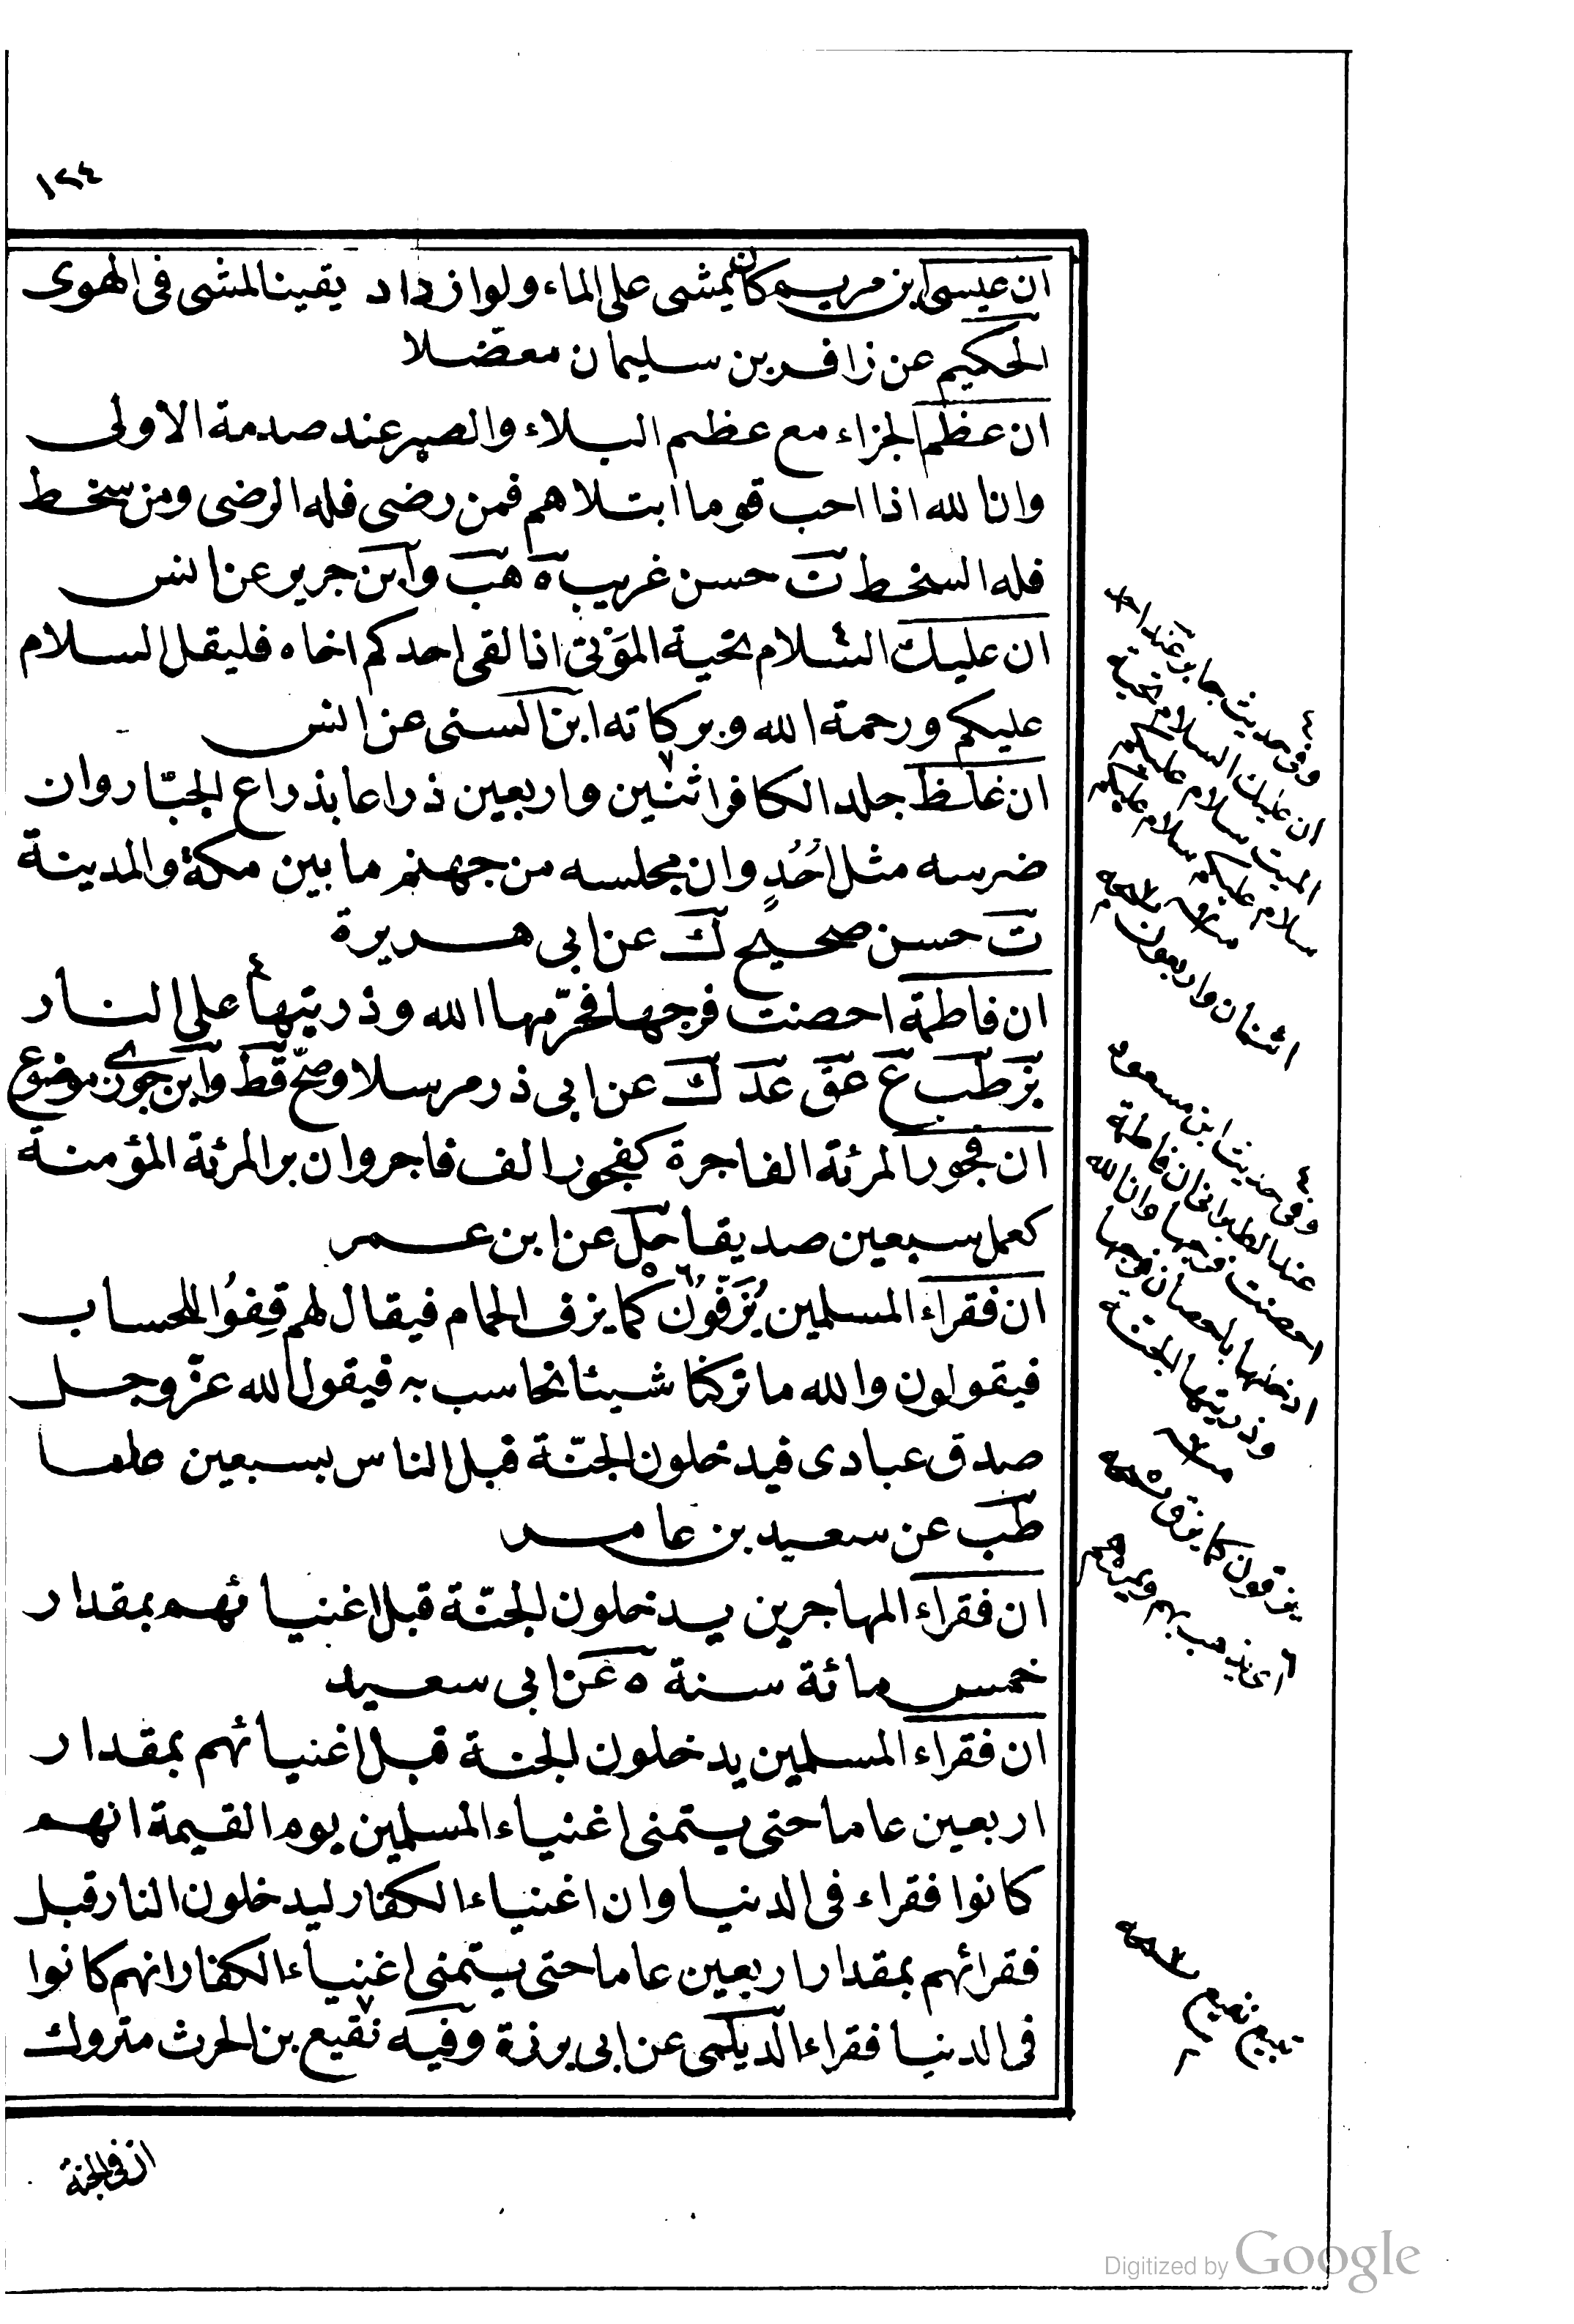 ١٢٤
ان عيسى ابن مريم كان يمشى على الماء ولو ازداد يقينا لمشى فى الهوى
الحكيم عن زافر بن سليمان معضلا
ان عظم الجزاء مع عظم البلاء والصبر عند صدمة الاولى
وان الله اذا احب قوما ابتلاهم فمن رضى فله الرضى ومن سخط
فله السخط ت حسن غريب ه هب وابن جرير عن انس
ان عليك السلام تحية الموتى اذا لقى احدكم اخاه فليقل السلام
عليكم ورحمة الله وبركاته ابن السنى عن انس
ان غلظ جلد الكافر اثنين واربعين ذراعا بذراع الجبّار وان
ضرسه مثل اُحُدٍ وان مجلسه من جهنم ما بين مكة والمدينة
ت حسن صحيح ك عن ابى هريرة
ان فاطمة احصنت فرجها فحرّمها الله وذريتها ٤ على النار
بز طب ع عق عد ك عن ابى ذر مرسلا وصحّ قط وابن جوزى موضوع
ان فجور المرئة الفاجرة كفجور الف فاجر وان بر المرئة المؤمنة
كعمل سبعين صديقا حل عن ابن عمر
ان فقراء المسلمين يُزَفّونُ ٦ كما ٥ يزف الحمام فيقال لهم قِفُوا للحساب
فيقولون والله ما تركنا شيئا نحاسب به فيقول الله عزّ وجل
صدق عبادى فيدخلون الجنّة قبل الناس بسبعين عاما
طب عن سعيد بن عامر
ان فقراء المهاجرين يدخلون الجنّة قبل اغنيائهم بمقدار
خمس مائة سنة ه عن ابى سعيد
ان فقراء المسلمين يدخلون الجنة قبل اغنيائهم بمقدار
اربعين عاما حتى يتمنى اغنياء المسلمين يوم القيمة انهم
كانوا فقراء فى الدنيا وان اغنياء الكفار ليدخلون النار قبل
فقرائهم بمقدار اربعين عاما حتى يتمنى اغنياء الكفار انهم كانوا
فى الدنيا فقراء الديلمى عن ابى برزة وفيه نفيع ٧ بن الحرث متروك
ان فى الجنة
٤ وفى حديث جابر عند
ان عليك السلام تحية
الميت سلام عليكم
سلام عليكم سلام عليكم
اثنان واربعون
٤ وفى حديث ابن مسعود
عند الطبرانى ان فاطمة
احصنت فرجها وان الله
ادخلها باحصان فرجها
وذريتها الجنة
يزفون كما يزف
٦ اى يذهب بهم
Digitized by Google